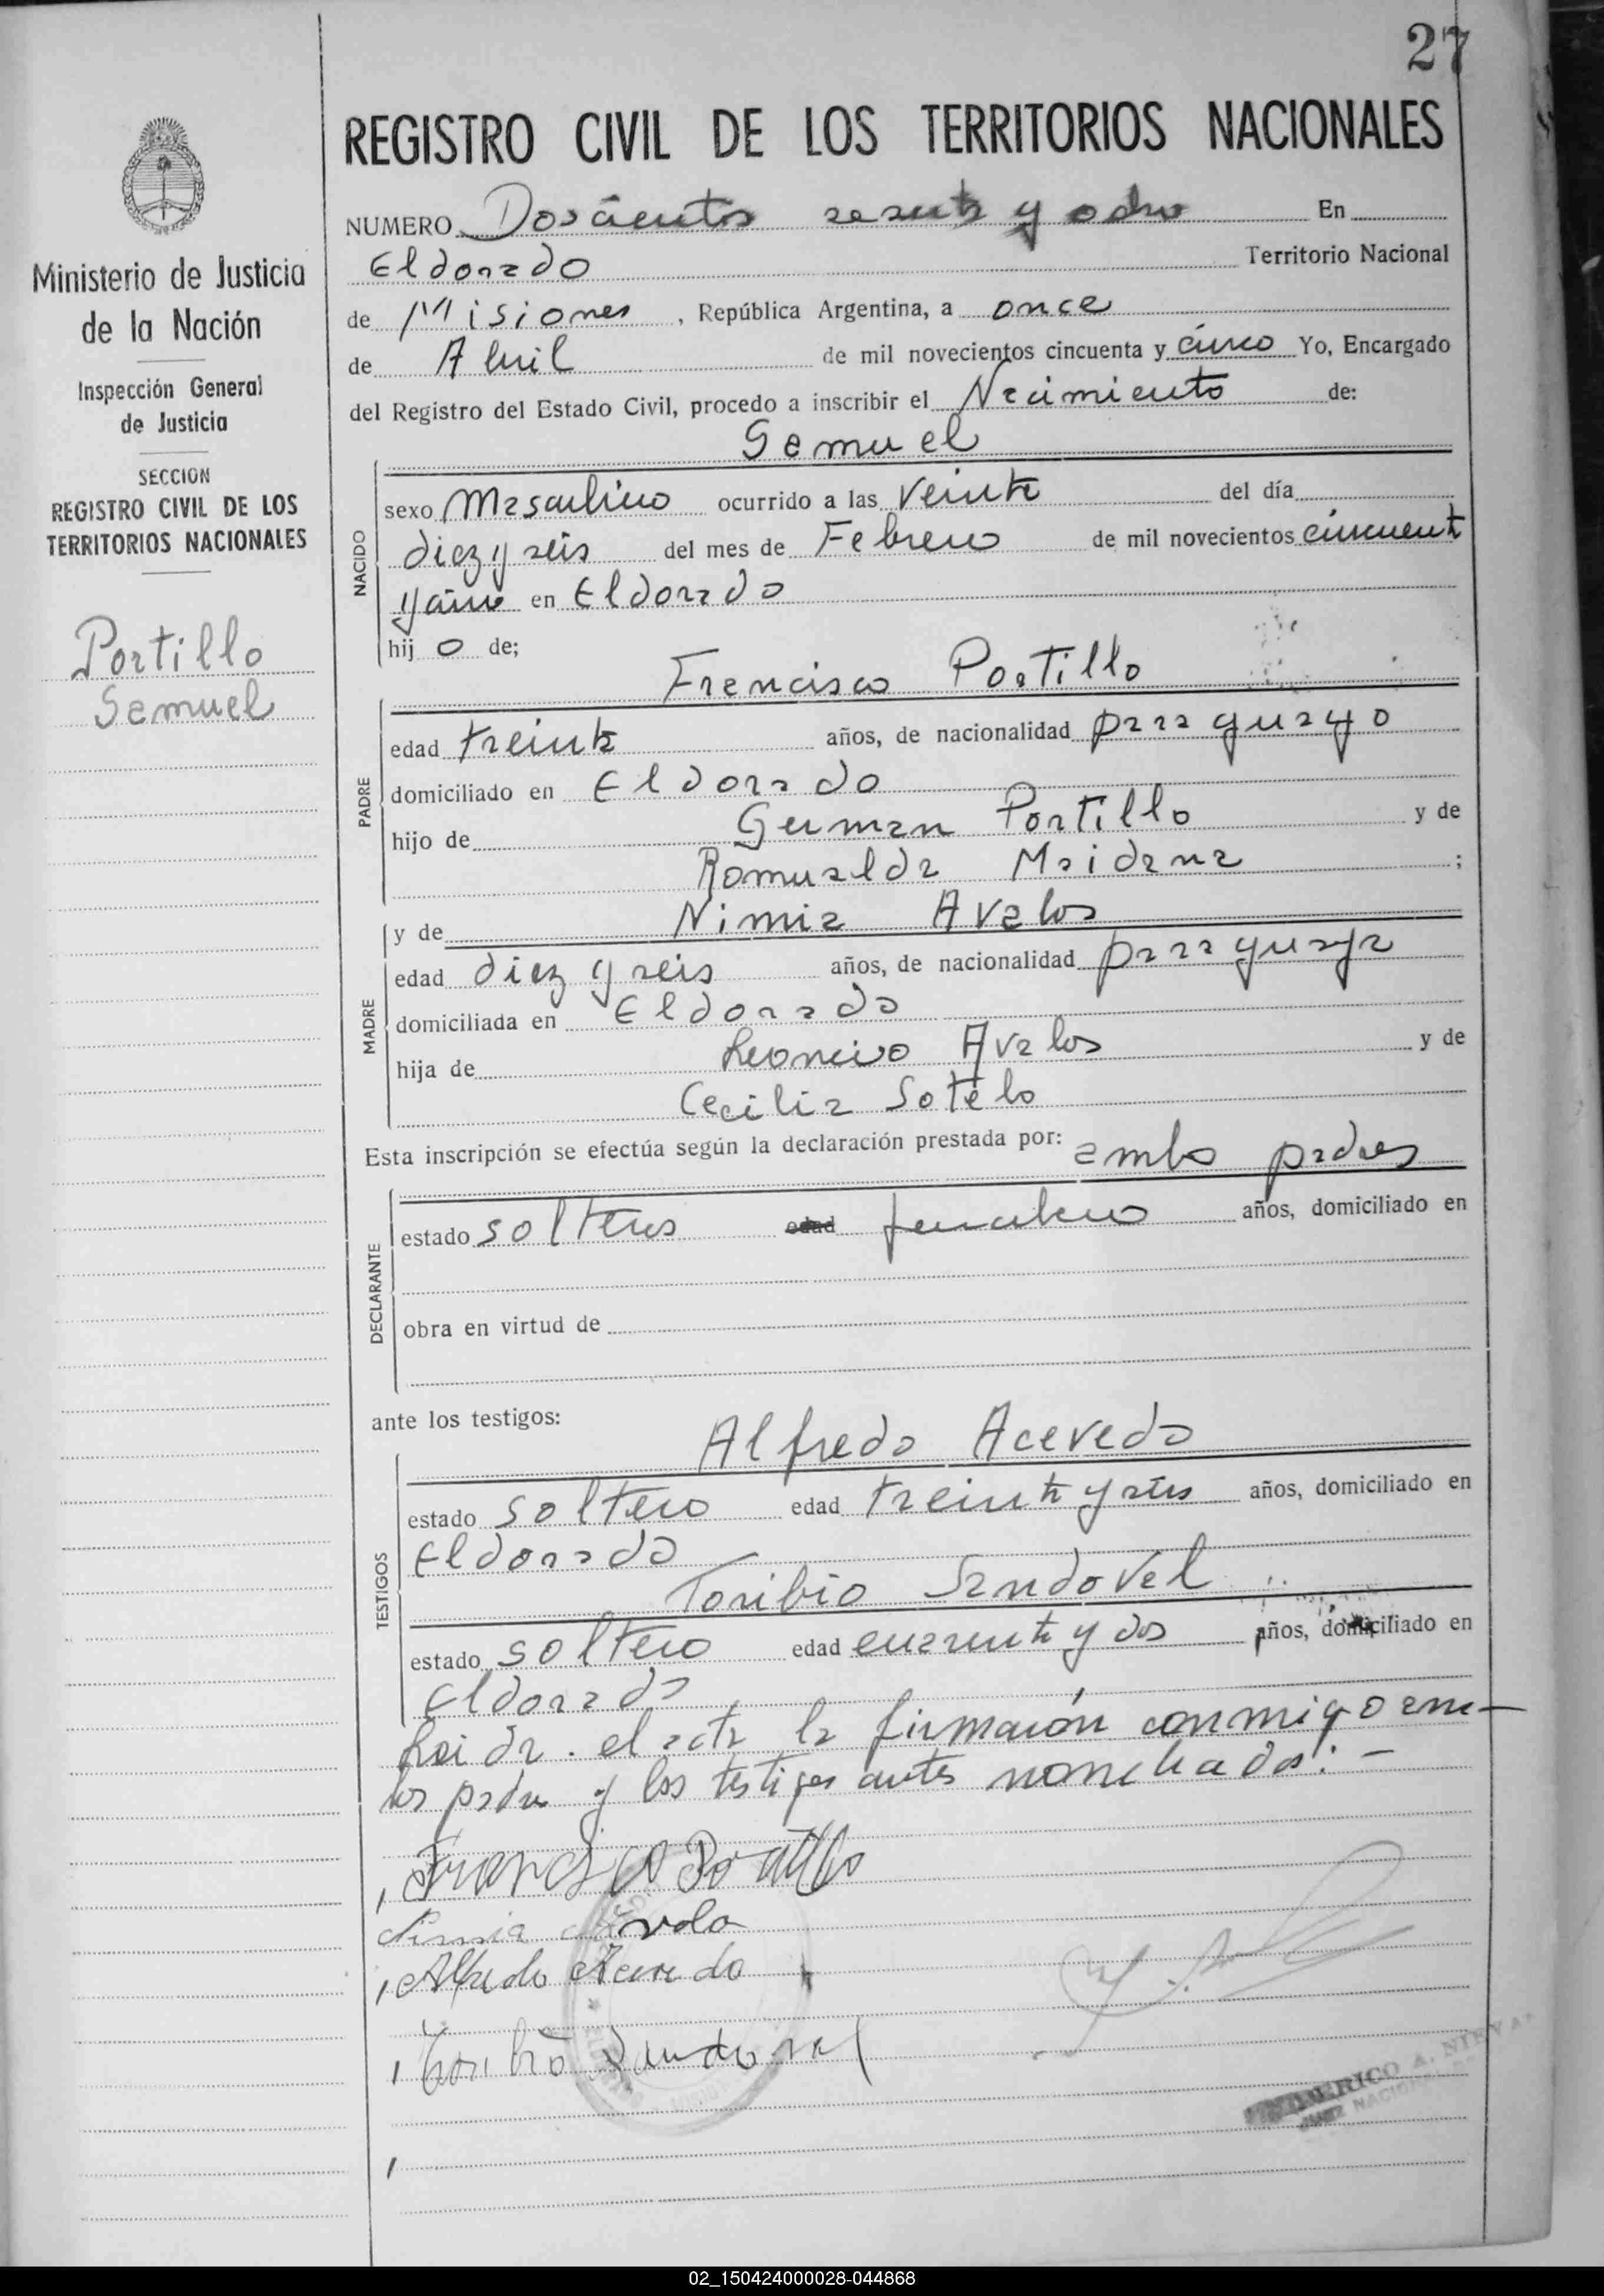 27
REGISTRO CIVIL DE LOS TERRITORIOS NACIONALES
NUMERO Doscientos sesenta y ocho En
Eldorado Territorio Nacional
de Misiones, República Argentina, a once
de Abril de mil novecientos cincuenta y cinco Yo, Encargado
del Registro del Estado Civil, procedo a inscribir el Nacimiento de:
Samuel
NACIDO
sexo Masculino ocurrido a las veinte del día
diez y seis del mes de Febrero de mil novecientos cincuenta
y cinco en Eldorado
hij o de;
Francisco Portillo
PADRE
edad treinta años, de nacionalidad paraguayo
domiciliado en Eldorado
hijo de German Portillo y de
Romualda Maidana ;
y de Nimia Avalos
MADRE
edad diez y seis años, de nacionalidad paraguaya
domiciliada en Eldorado
hija de Leoncio Avalos y de
Cecilia Sotelo
Esta inscripción se efectúa según la declaración prestada por: ambos padres
DECLARANTE
estado solteros edad años, domiciliado en
obra en virtud de
ante los testigos:
Alfredo Acevedo
TESTIGOS
estado soltero edad treinta y años, domiciliado en
Eldorado
Toribio Sandoval
estado soltero edad cuarenta y dos años, domiciliado en
Eldorado
Leida el acta la firmarón conmigo am-
bos padres y los testigos antes nombrados.-
Francisco Portillo
Nimia Avalo
Alfredo Acevedo
Toribio Sandoval
AMERICO A.
Ministerio de Justicia
de la Nación
Inspección General
de Justicia
SECCION
REGISTRO CIVIL DE LOS
TERRITORIOS NACIONALES
Portillo
Samuel
02_150424000028-044868